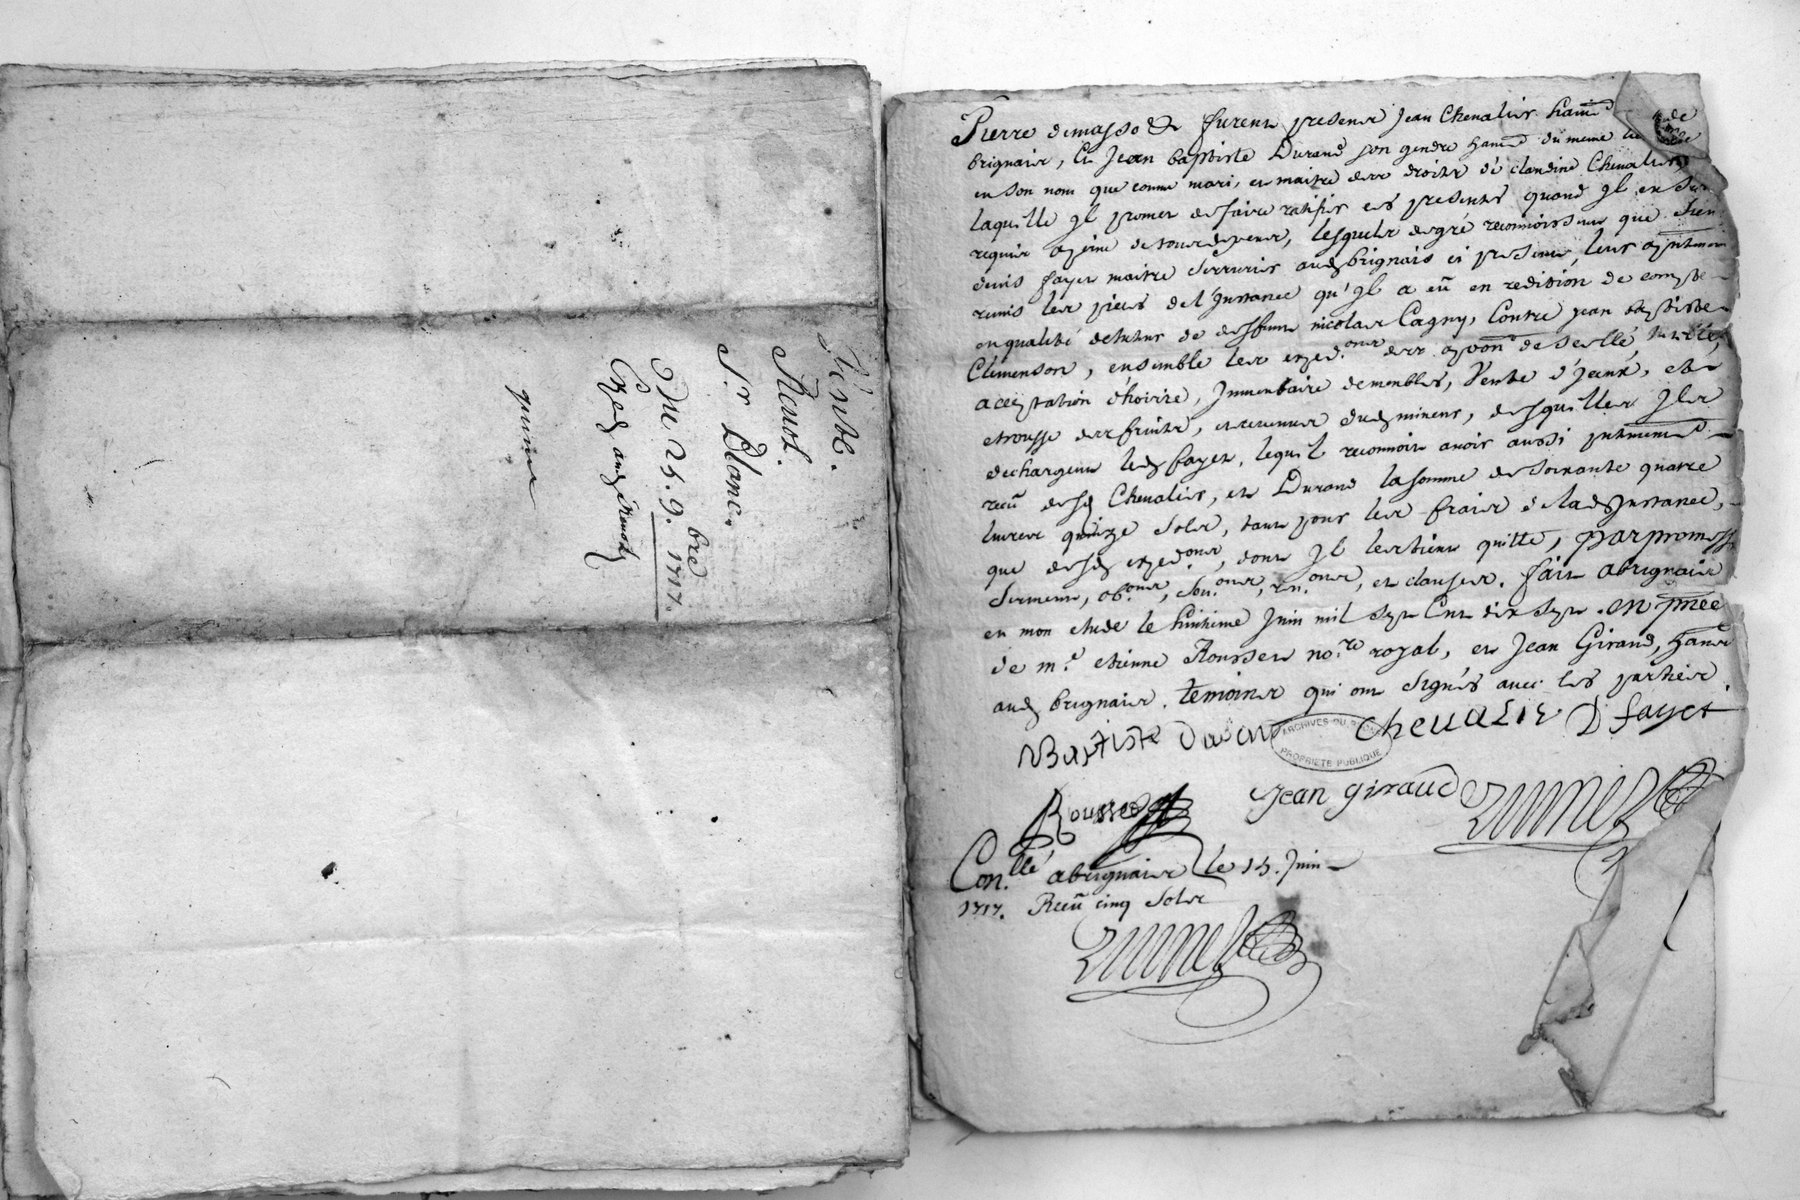 Vente.
Renot.
Sr Blanc.
Du 25. 9.bre 1717.
Exped aud Renot
Pierre demasso &c furent presents Jean Chevalier hant de
brignais, Et Jean baptiste Durand son gendre hant du meme lieu
en son nom que comme mari, et maitre des droits de claudine Chevalier,
laquelle Jl promet de faire ratifier ces presentes quand Jl en sera
requis a peine de tous depens, lesquels de gré reconnoissent que
denis fayet maitre serrurier aud brignais ci present, leur a
remis les pieces de l'Jnstance qu'Jl a eû en redition de compte
en qualité de tuteur de deffunt nicolas Cagny, Contre jean baptiste
Clemenson, ensemble les exped.ons des app.ons de scellé, tutelle,
acceptation d'hoirie, Jnventaire de meubles, Vente d'Jceux, et
etrousse des fruits, et revenus dud mineur, desquelles Jls
dechargent led fayet, lequel reconnoit avoir aussi
reçu desd Chevalier, et Durand la somme de soixante quatre
livres quinze sols, tant pour les frais de lad Jnstance,
que desd exped.ons, dont Jl les tient quitte, par promesse
serment, ob.ons, sou.ons, ren.ons, et clauses. fait a brignais
en mon etude le huitieme Juin mil sept Cent dix sept. en pnce
de m.e etienne Rousset no.re royal, et Jean Giraud, hant
aud brignais. temoins qui ont signés avec les parties.
Baptiste Duran Chevalie D fayet
ARCHIVES DU
PROPRIETE PUBLIQUE
Rousset Jean giraud
Con.llé a brignais le 15. Juin
1717. Reçû cinq sols